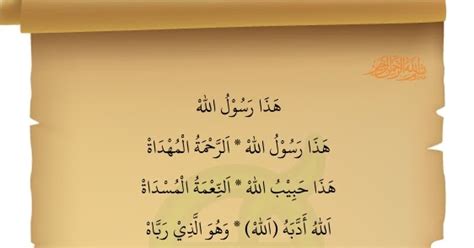 هَذَا رَسُوْلُ اللهْ
هَذَا رَسُوْلُ اللهْ * اَلرَّحْمَةُ الْمُهْدَاةْ
هَذَا حَبِيْبُ اللهْ * اَلنِّعْمَةُ الْمُسْدَاةْ
اَللهُ أَدَّبَهُ (اَللهُ) * وَهُوَ الَّذِيْ رَبَّاهْ